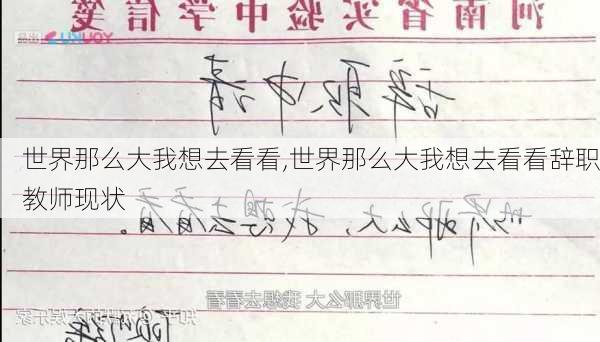 河南省实验中学信笺
YOUKU
辞职申请
世界那么大我想去看看,世界那么大我想去看看辞职
教师现状
世界那么大，我想去看看。
世界那么大 我想去看看
顾少强